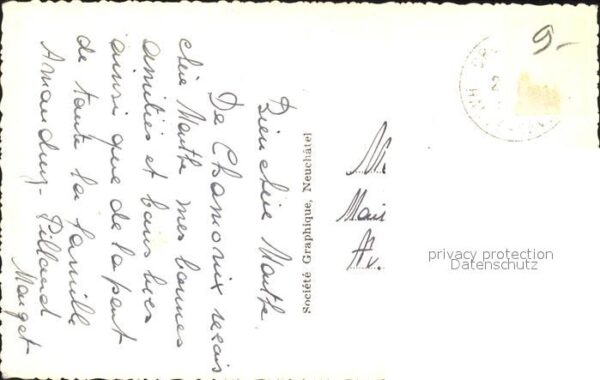 Bien chère Marthe
De Chamonix reçois
chère Marthe mes bonnes
amitiés et bons bises
ainsi que de la part
de toute la famille
Amaudruz - Pilloud
Mauget
Société Graphique, Neuchâtel
M
Av.
9.-
privacy protection
Datenschutz